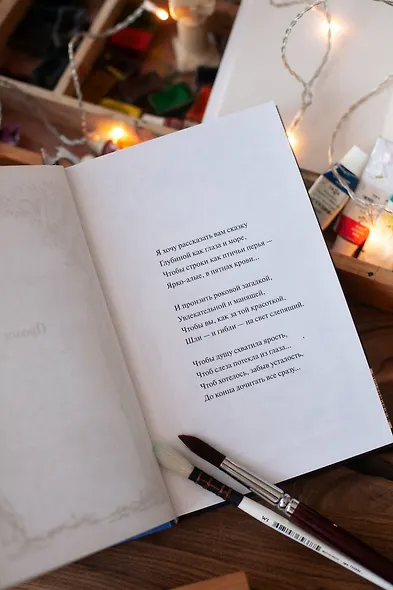 Я хочу рассказать вам сказку
Глубиной как глаза и море,
Чтобы строки как птичьи перья —
Ярко-алые, в пятнах крови...
И пронзить роковой загадкой,
Увлекательной и манящей,
Чтобы вы, как за той красоткой,
Шли — и гибли — на свет слепящий.
Чтобы душу схватила ярость,
Чтоб слеза потекла из глаза...
Чтоб хотелось, забыв усталость,
До конца дочитать все сразу...